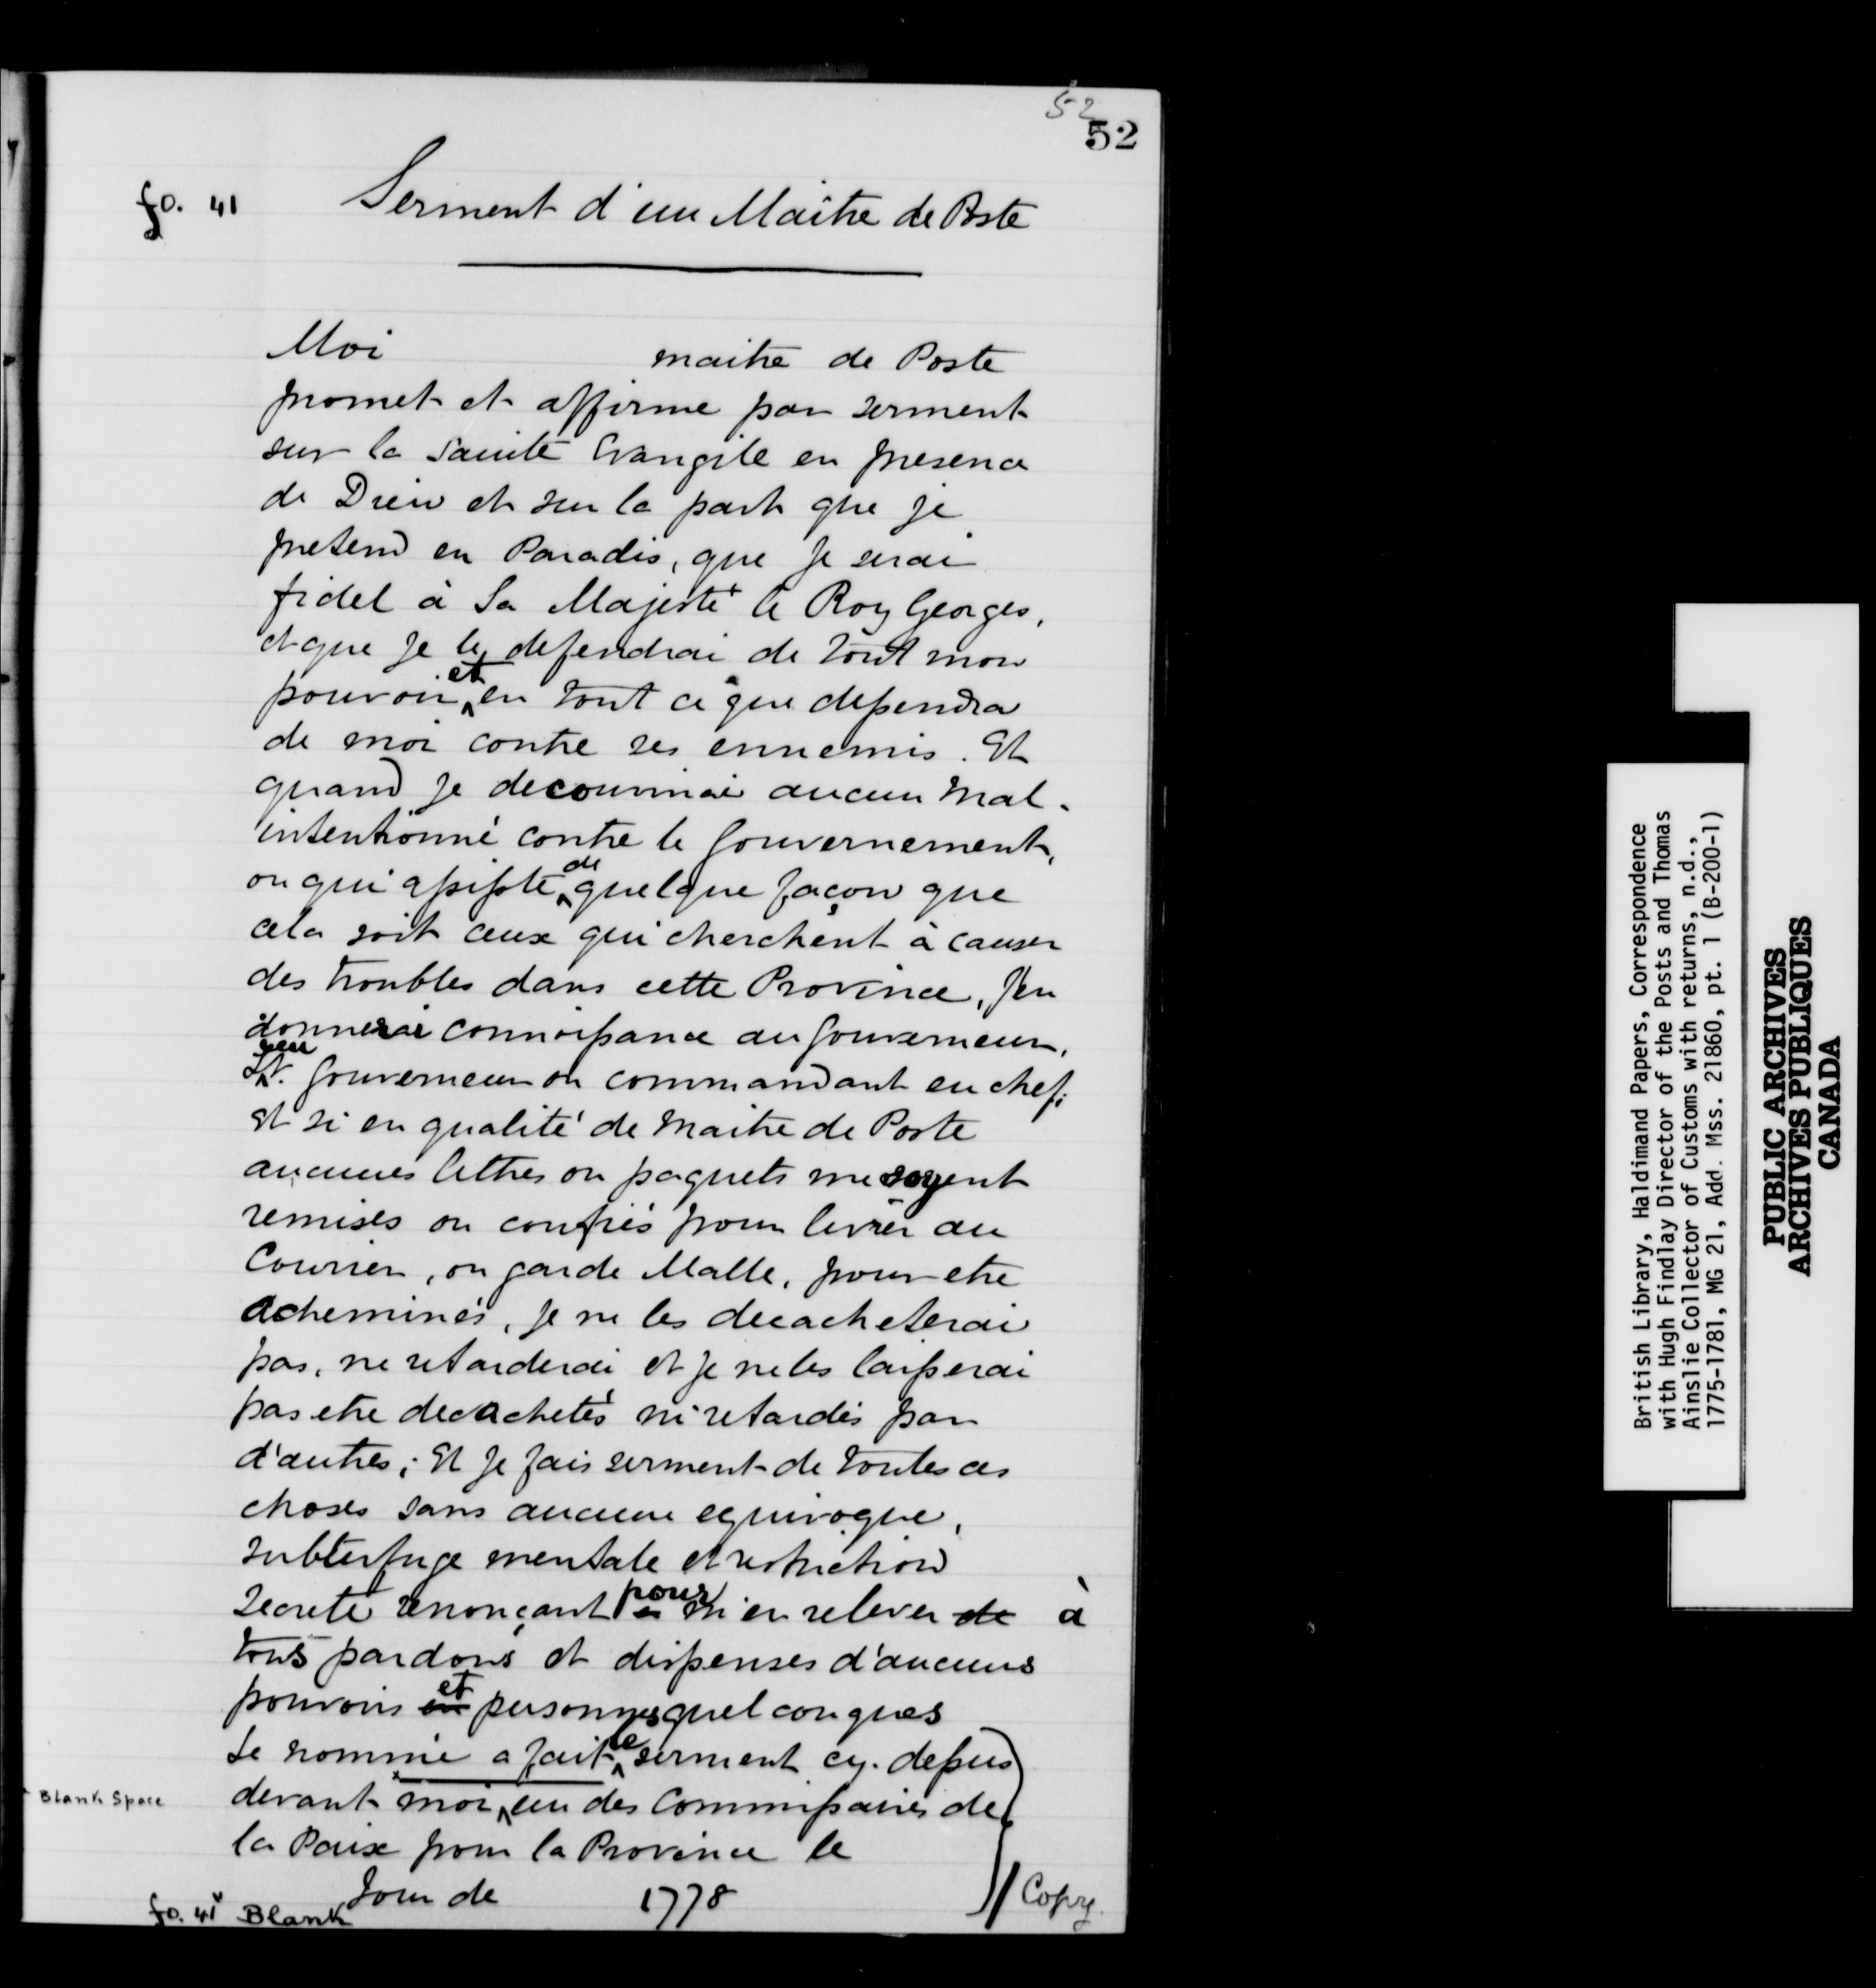 52
52
fo. 41
Serment d'un Maître de Poste
Moi maitre de Poste
promet et affirme par serment
sur la sainte Evangile en presence
de Dieu et sur la part que je
pretend en Paradis, que Je serai
fidel à Sa Majesté le Roy Georges,
et que Je le defendrai de tout mon
pouvoir et en tout ce que dependra
de moi contre ses ennemis. Et
quand Je decouvrirai aucun mal-
intentionné contre le Gouvernement,
ou qui assiste de quelque façon que
cela soit ceux qui cherchent à causer
des troubles dans cette Province, J'en
donnerai connoissance au Gouverneur,
Gouverneur ou commandant en chef;
Et si en qualité de Maitre de Poste
aucunes lettres ou paquets me soyent
remises ou confiés pour livrer au
Courrier, ou garde Malle, pour etre
acheminés, Je ne les decacheterai
pas, ne retarderai et Je ne les laisserai
pas etre decachetés ni retardés par
d'autres; Et Je fais serment de toutes ces
choses sans aucune equivoque,
subterfuge mentale et restriction
secrete renonçant pour m'en relever de à
tous pardons et dispenses d'aucuns
pouvoirs et personnes quelconques
Le nommé a fait le serment cy-dessus
Blank Space
devant moi, un des Commissaires de
la Paix pour la Province le
Jour de 1778
Copy.
fo. 41v Blank
British Library, Haldimand Papers, Correspondence
with Hugh Findlay Director of the Posts and Thomas
Ainslie Collector of Customs with returns, n.d.,
1775-1781, MG 21, Add. Mss. 21860, pt. 1 (B-200-1)
PUBLIC ARCHIVES
ARCHIVES PUBLIQUES
CANADA